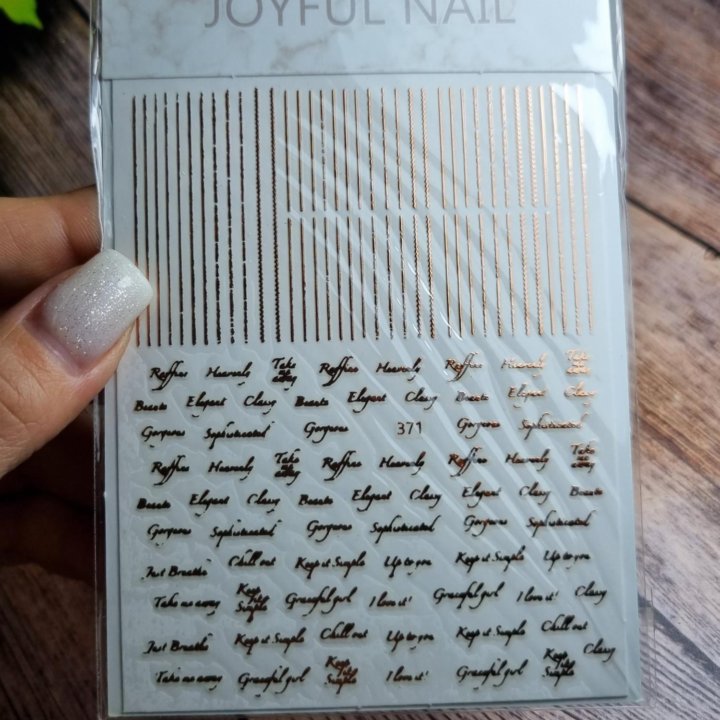 JOYFUL NAIL
Raffine Heavenly Take me away Raffine Heavenly Raffine Heavenly Take me away
Beaute Elegant Classy Beaute Elegant Classy Beaute Elegant Classy
Gorgeous Sophisticated Gorgeous 371 Gorgeous Sophisticated
Raffine Heavenly Take me away Raffine Heavenly Raffine Heavenly Take me away
Beaute Elegant Classy Beaute Elegant Classy Elegant Classy Beaute
Gorgeous Sophisticated Gorgeous Sophisticated Gorgeous Sophisticated
Just Breathe Chill out Keep it Simple Up to you Keep it Simple Up to you
Take me away Keep it Simple Graceful girl I love it! Graceful girl I love it! Classy
Just Breathe Keep it Simple Chill out Up to you Keep it Simple Chill out Classy
Take me away Graceful girl Keep it Simple I love it! Graceful girl Keep it Simple